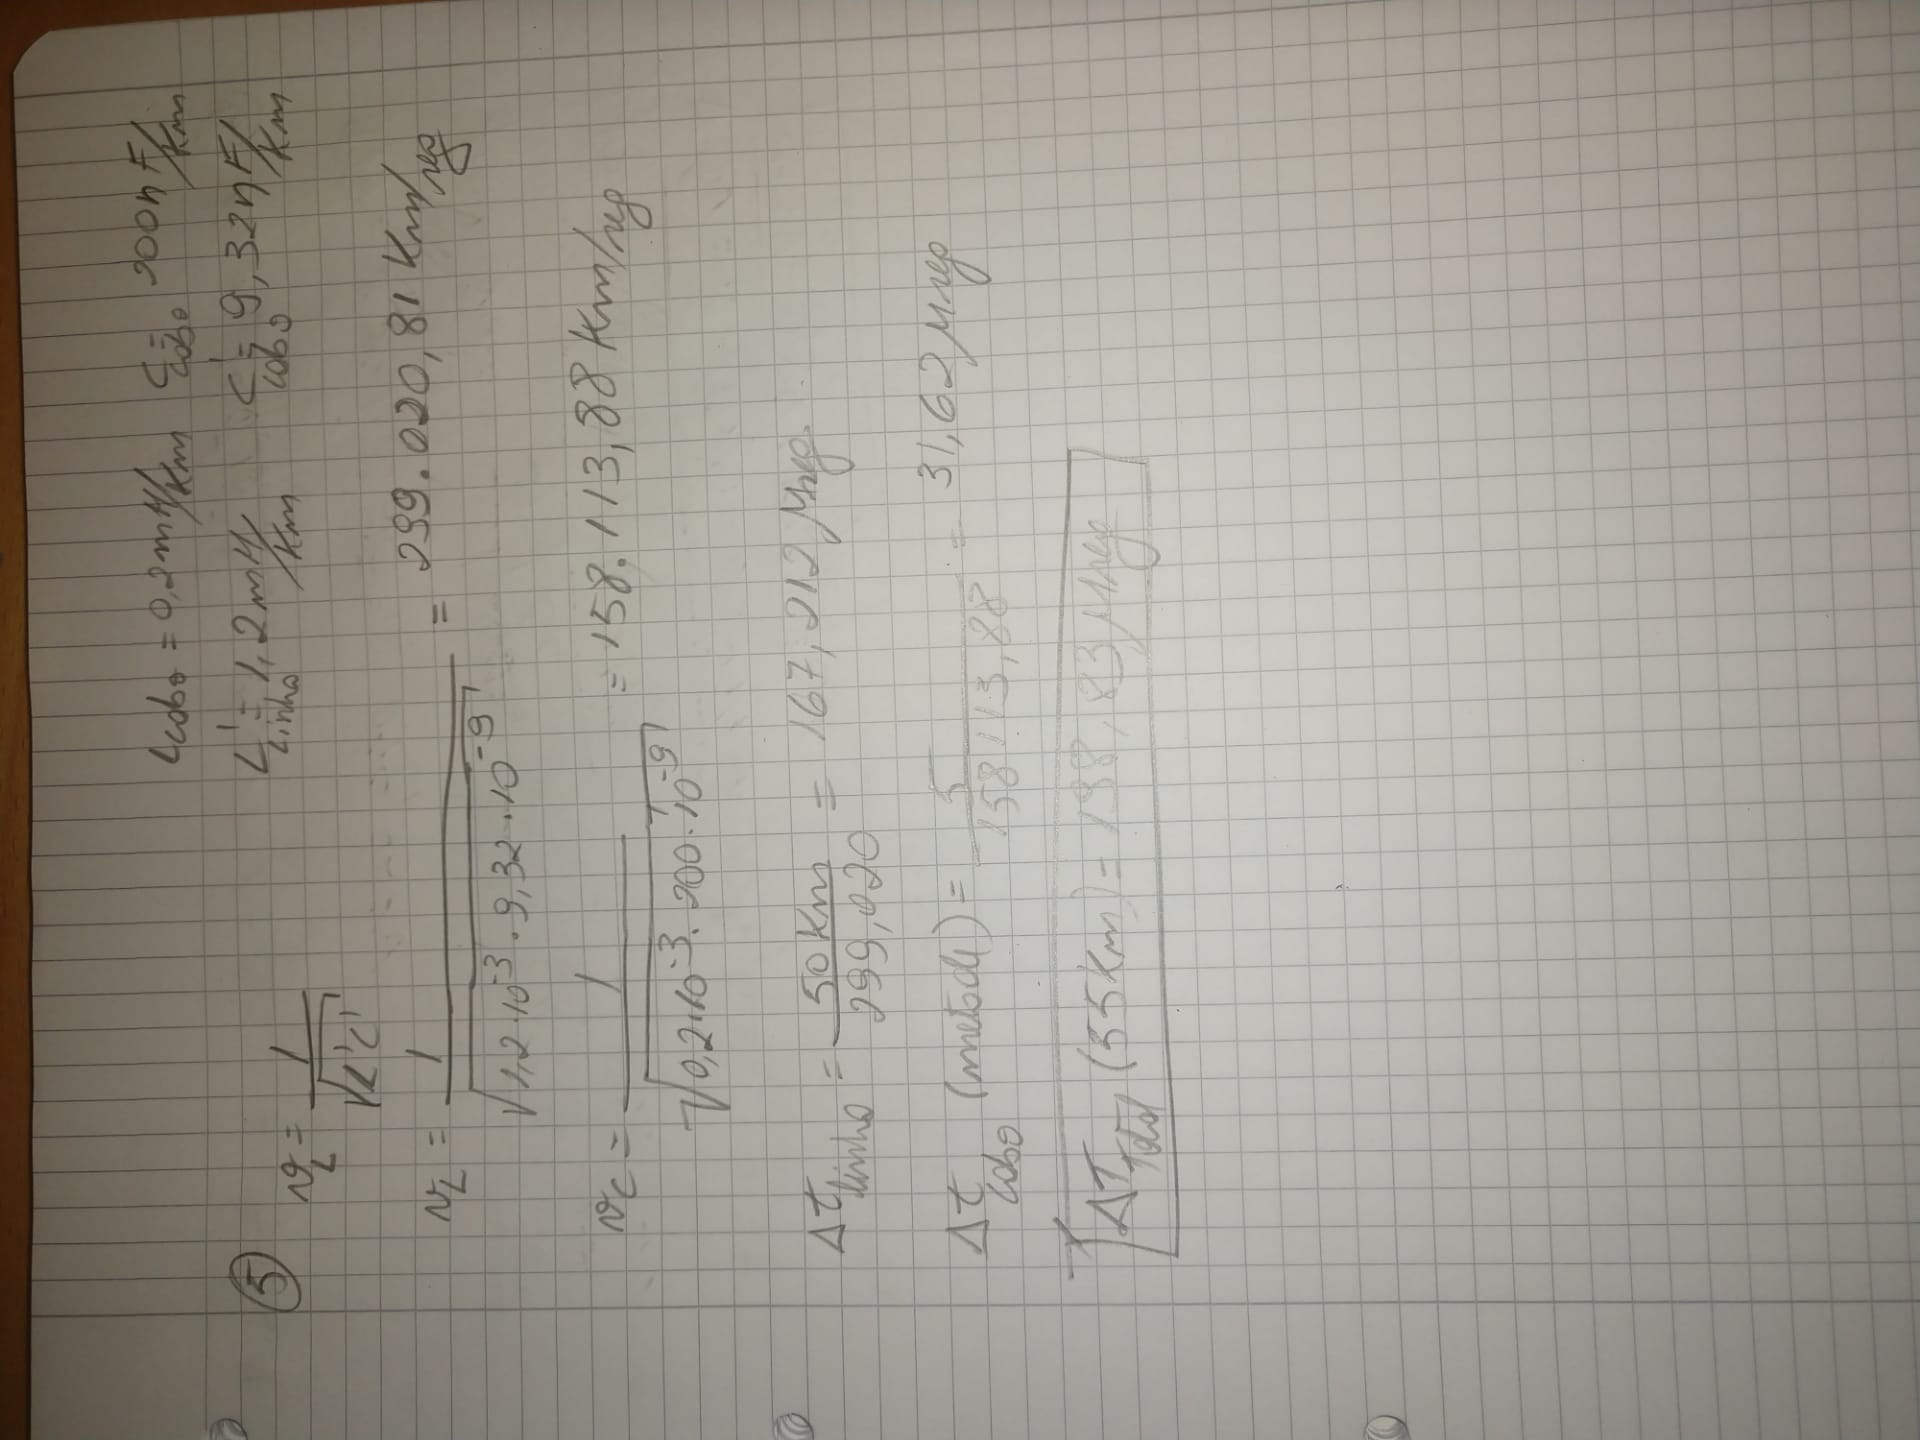 Lcabo = 0,2mH/Km Ccabo = 200nF/Km
L'Linha = 1,2mH/Km C'cabo = 9,32nF/Km
⑤ vL = 1/√(L'C')
vL = 1/√(1,2·10^-3 · 9,32·10^-9) = 299.020,81 Km/seg
vc = 1/√(0,2·10^-3 · 200·10^-9) = 158.113,88 Km/seg
Δt linha = 50 Km/299,020 = 167,212 μseg
Δt cabo (metade) = 5/158113,88 = 31,62 μseg
ΔT Total (55Km) = 198,83 μseg